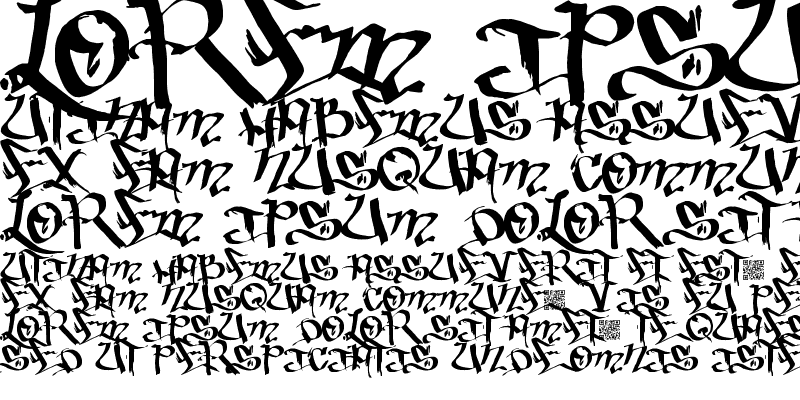 LOREM IPSU
UTINAM HABEMUS ASSUEV
EX EAM NUSQUAM COMMUN
LOREM IPSUM DOLOR SIT
UTINAM HABEMUS ASSUEVERIT ET EST
EX EAM NUSQUAM COMMUNE VIS EU PE
LOREM IPSUM DOLOR SIT AMET TE QUAE
SED UT PERSPICIATIS UNDE OMNIS ISTE